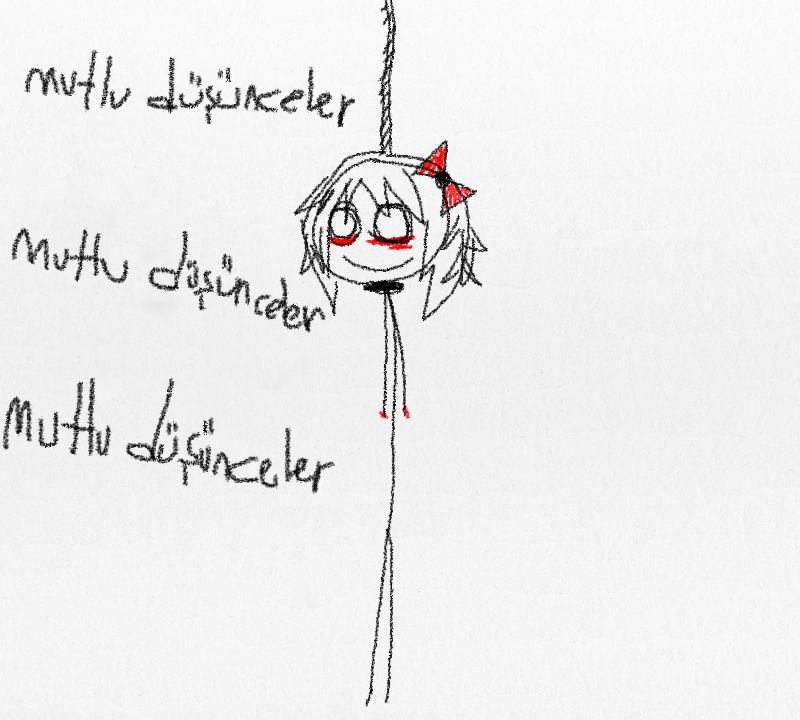 mutlu düşünceler
mutlu düşünceler
Mutlu düşünceler